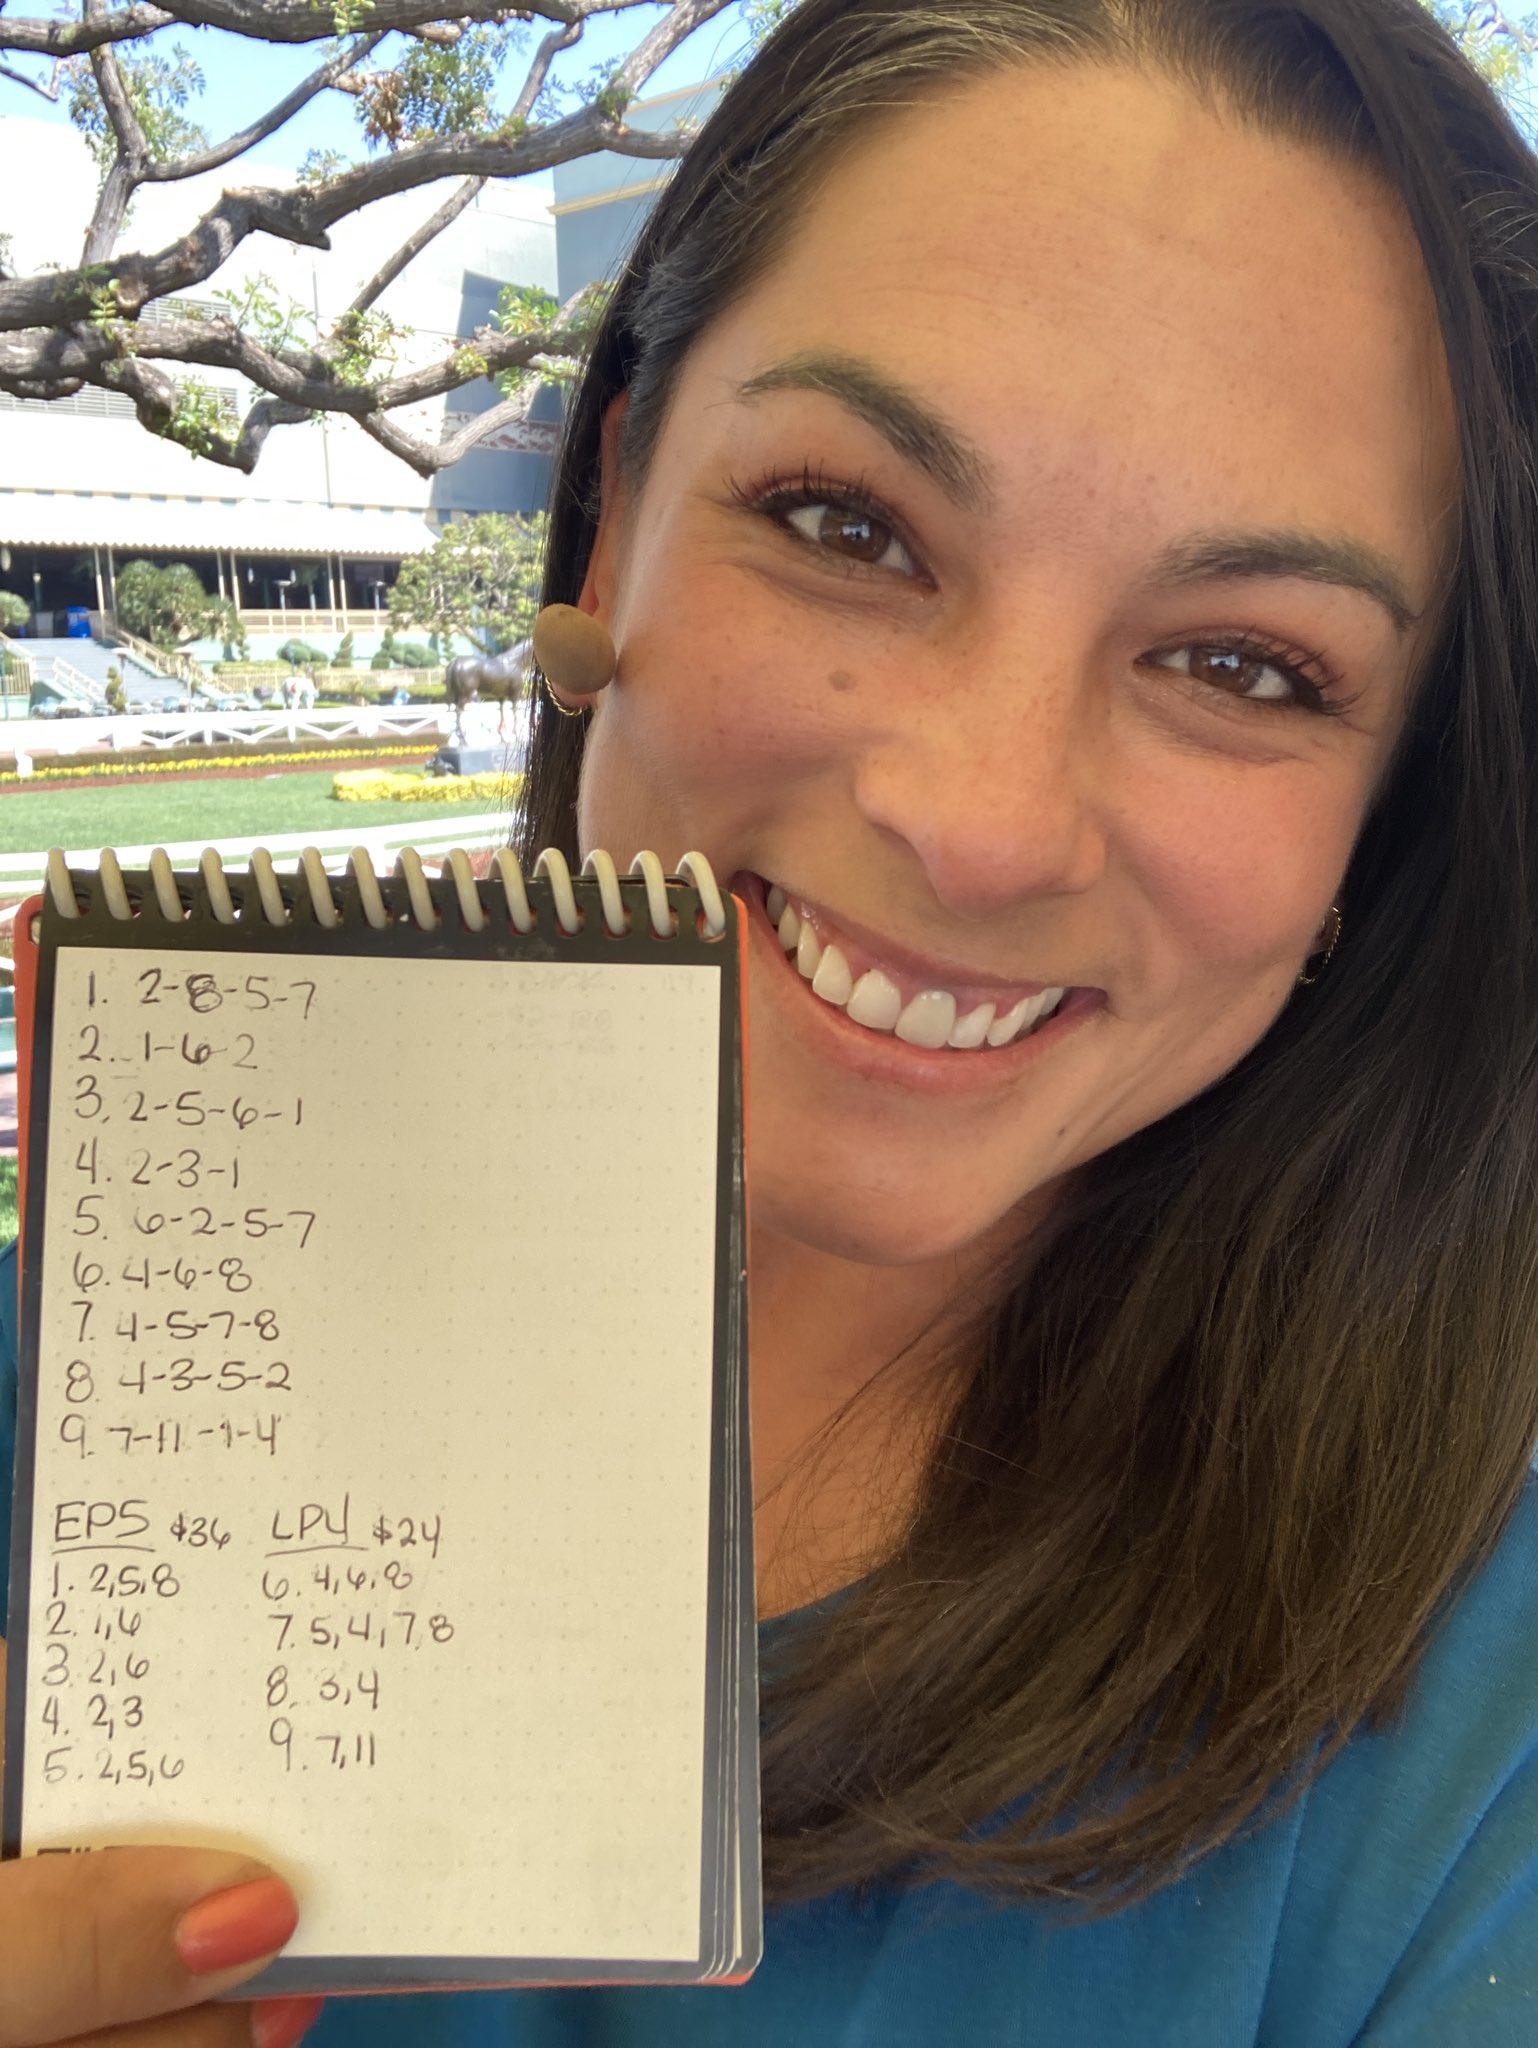 1. 2-8-5-7
2. 1-6-2
3. 2-5-6-1
4. 2-3-1
5. 6-2-5-7
6. 4-6-8
7. 4-5-7-8
8. 4-3-5-2
9. 7-11-1-4
EP5 $36
1. 2,5,8
2. 1,6
3. 2,6
4. 2,3
5. 2,5,6
LP4 $24
6. 4,6,8
7. 5,4,7,8
8. 3,4
9. 7,11